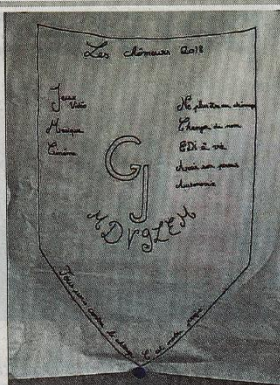 Les chômeurs 2018
Jeux
Vidéo
Musique
Cinéma
Ne plus être au chômage
Changer de nom
EDI à vie
Avoir son permis
Autonomie
GJ
MDVGLEM
Tous unis contre le chômage
C'est notre